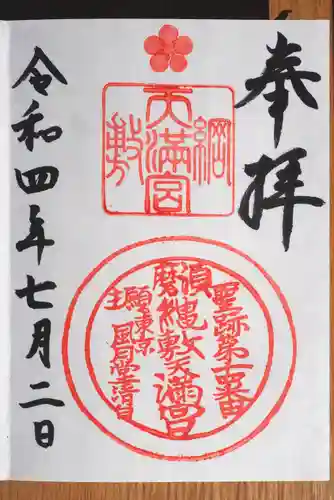 奉拝
綱敷
天満宮
聖跡第十四番
須磨
綱敷天満宮
願主
東京
風月堂
令和四年七月二日